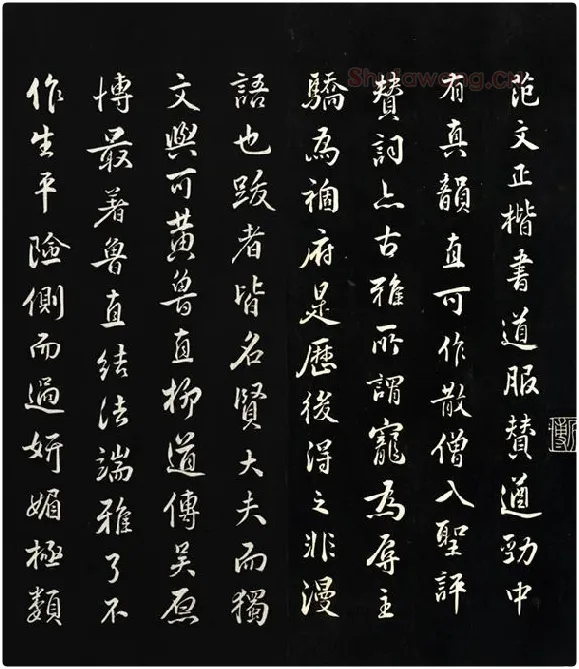 范文正楷書道服賛遒勁中
有真韻直可作散僧入聖評
賛詞亦古雅所謂寵為辱主
驕為禍府是歷後得之非漫
語也跋者皆名賢大夫而獨
文與可黃魯直柳道傳吳原
博最著魯直結法端雅了不
作生平險側而過妍媚極類